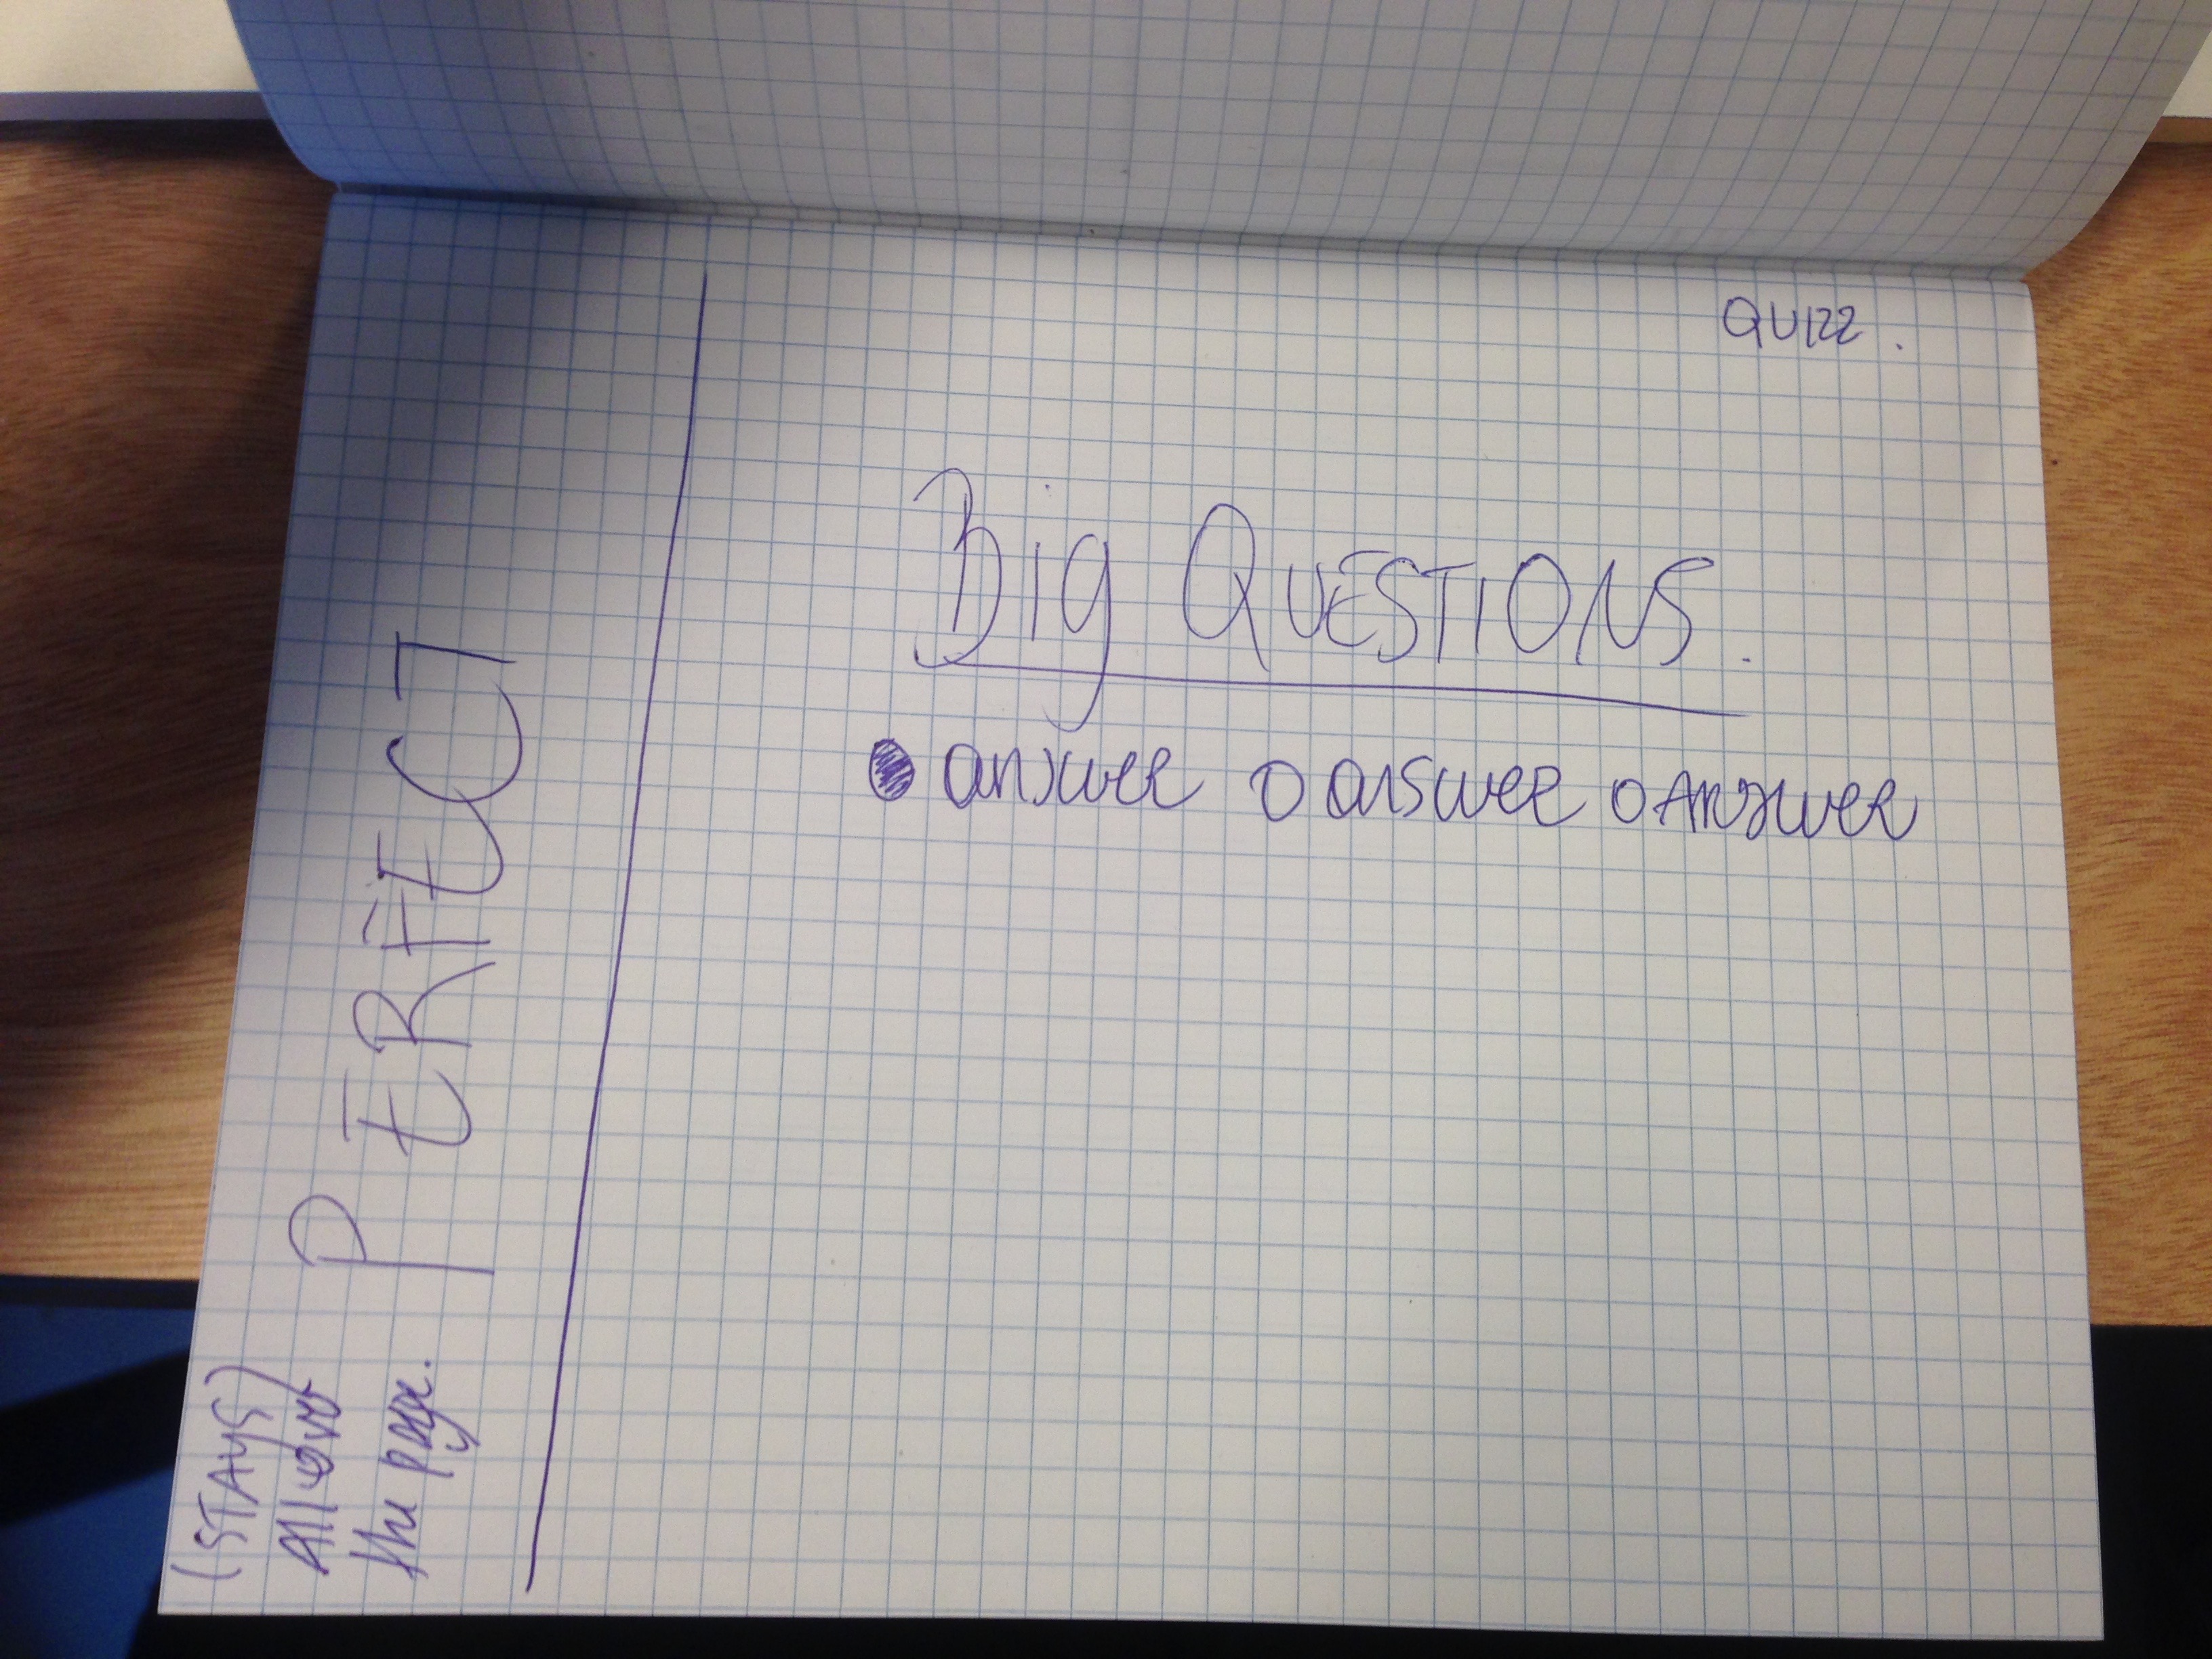 QUIZZ.
Big QUESTIONS.
answer answer Answer
PERFECT
(STAYS)
All over
the page.